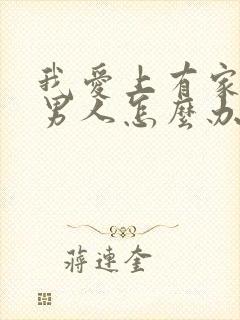 我愛上有家
男人怎麼办
蔣連奎